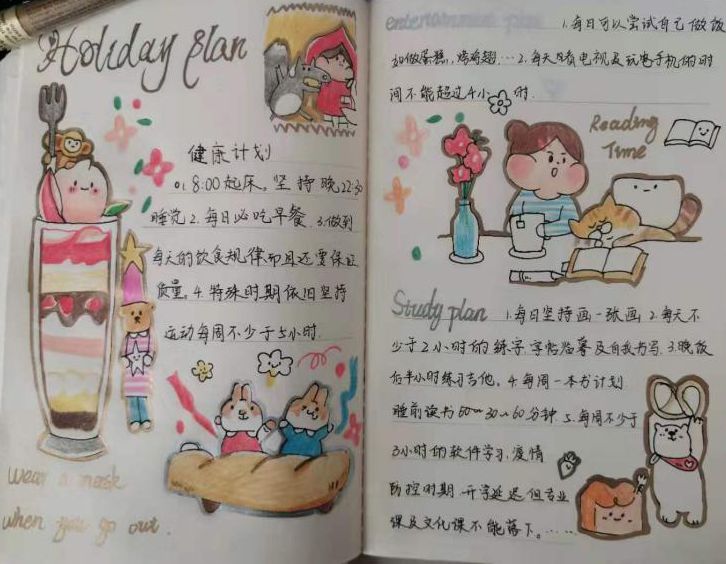 Holiday plan
健康计划
1. 8:00起床。坚持晚22:30
睡觉 2. 每日必吃早餐 3. 做到
每天的饮食规律而且还要保证
质量。4. 特殊时期依旧坚持
运动每周不少于5小时.
wear a mask
when you go out.
entertainment plan 1. 每日可以尝试自己做饭
如做蛋糕，烤鸡翅…2. 每天看电视及玩电子手机的时
间不能超过4小时.
Reading
Time
Study plan 1. 每日坚持画一张画 2. 每天不
少于2小时的练字.字帖临摹及自我书写. 3. 晚饭
后半小时练习吉他. 4. 每周一本书计划
睡前读书30~60分钟 5. 每周不少于
3小时的软件学习. 疫情
防控时期.开学延迟但专业
课及文化课不能落下。……